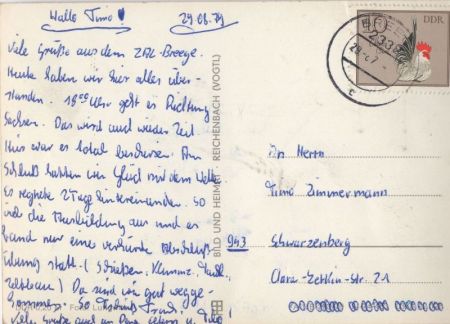 Hallo Timo
29.06.79
Viele Grüße aus dem ZAL-Breege.
Heute haben wir hier alles über-
standen. 18⁰⁰ Uhr geht es Richtung
Sachsen. Das wird auch wieder Zeit.
Hier war es total beschissen. Am
Schluß hatten wir Glück mit dem Wetter.
Es regnete 2 Tage hintereinander. So
viel die Ausbildung aus und es
fand nur eine verkürzte Abschluß-
übung statt (Schießen,
Da sind wir gut wegge-
kommen.
Viele Grüße auch an Deine Eltern u.
BILD UND HEIMAT REICHENBACH (VOGTL)
BREEGE
2338
DDR
An Herrn
Timo Zimmermann
943 Schwarzenberg
Clara-Zetkin-Str. 21